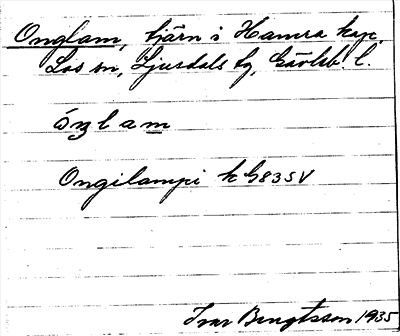 Onglam, tjärn i Hamra kap.
Los sn, Ljusdals tg, Gävleb. l.
óŋlam
Ongilampi k G835V
Ivar Bengtsson 1935